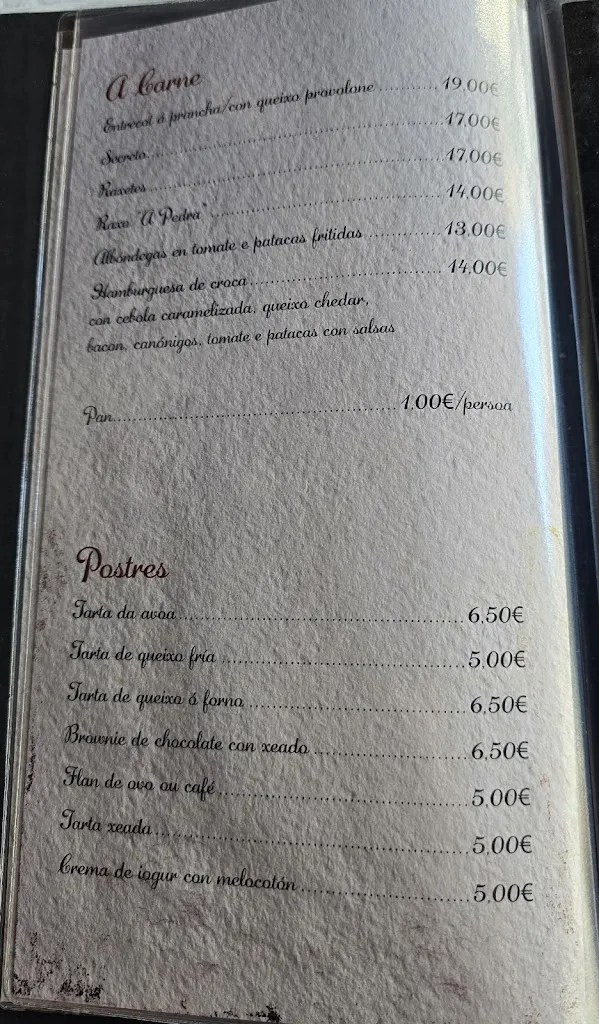 A Carne
Entrecot á prancha/con queixo provolone ........... 19,00€
Secreto ........... 17,00€
Raxetes ........... 17,00€
Raxo "A Pedra" ........... 14,00€
Albóndegas en tomate e patacas fritidas ........... 13,00€
Hamburguesa de croca ........... 14,00€
con cebola caramelizada, queixo chedar,
bacon, canónigos, tomate e patacas con salsas
Pan ........... 1,00€/persoa
Postres
Tarta da avoa ........... 6,50€
Tarta de queixo fría ........... 5,00€
Tarta de queixo ó forno ........... 6,50€
Brownie de chocolate con xeado ........... 6,50€
Flan de ovo ou café ........... 5,00€
Tarta xeada ........... 5,00€
Crema de iogur con melocotón ........... 5,00€